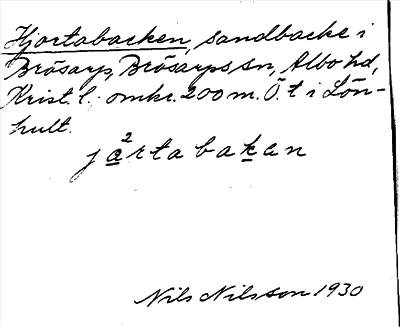 Hjortabacken, sandbacke i
Brösarp, Brösarps sn, Albo hd,
Krist. l. omkr. 200 m. Ö. t i Lön-
hult.
j²a̲rtabak̲en
Nils Nilsson 1930